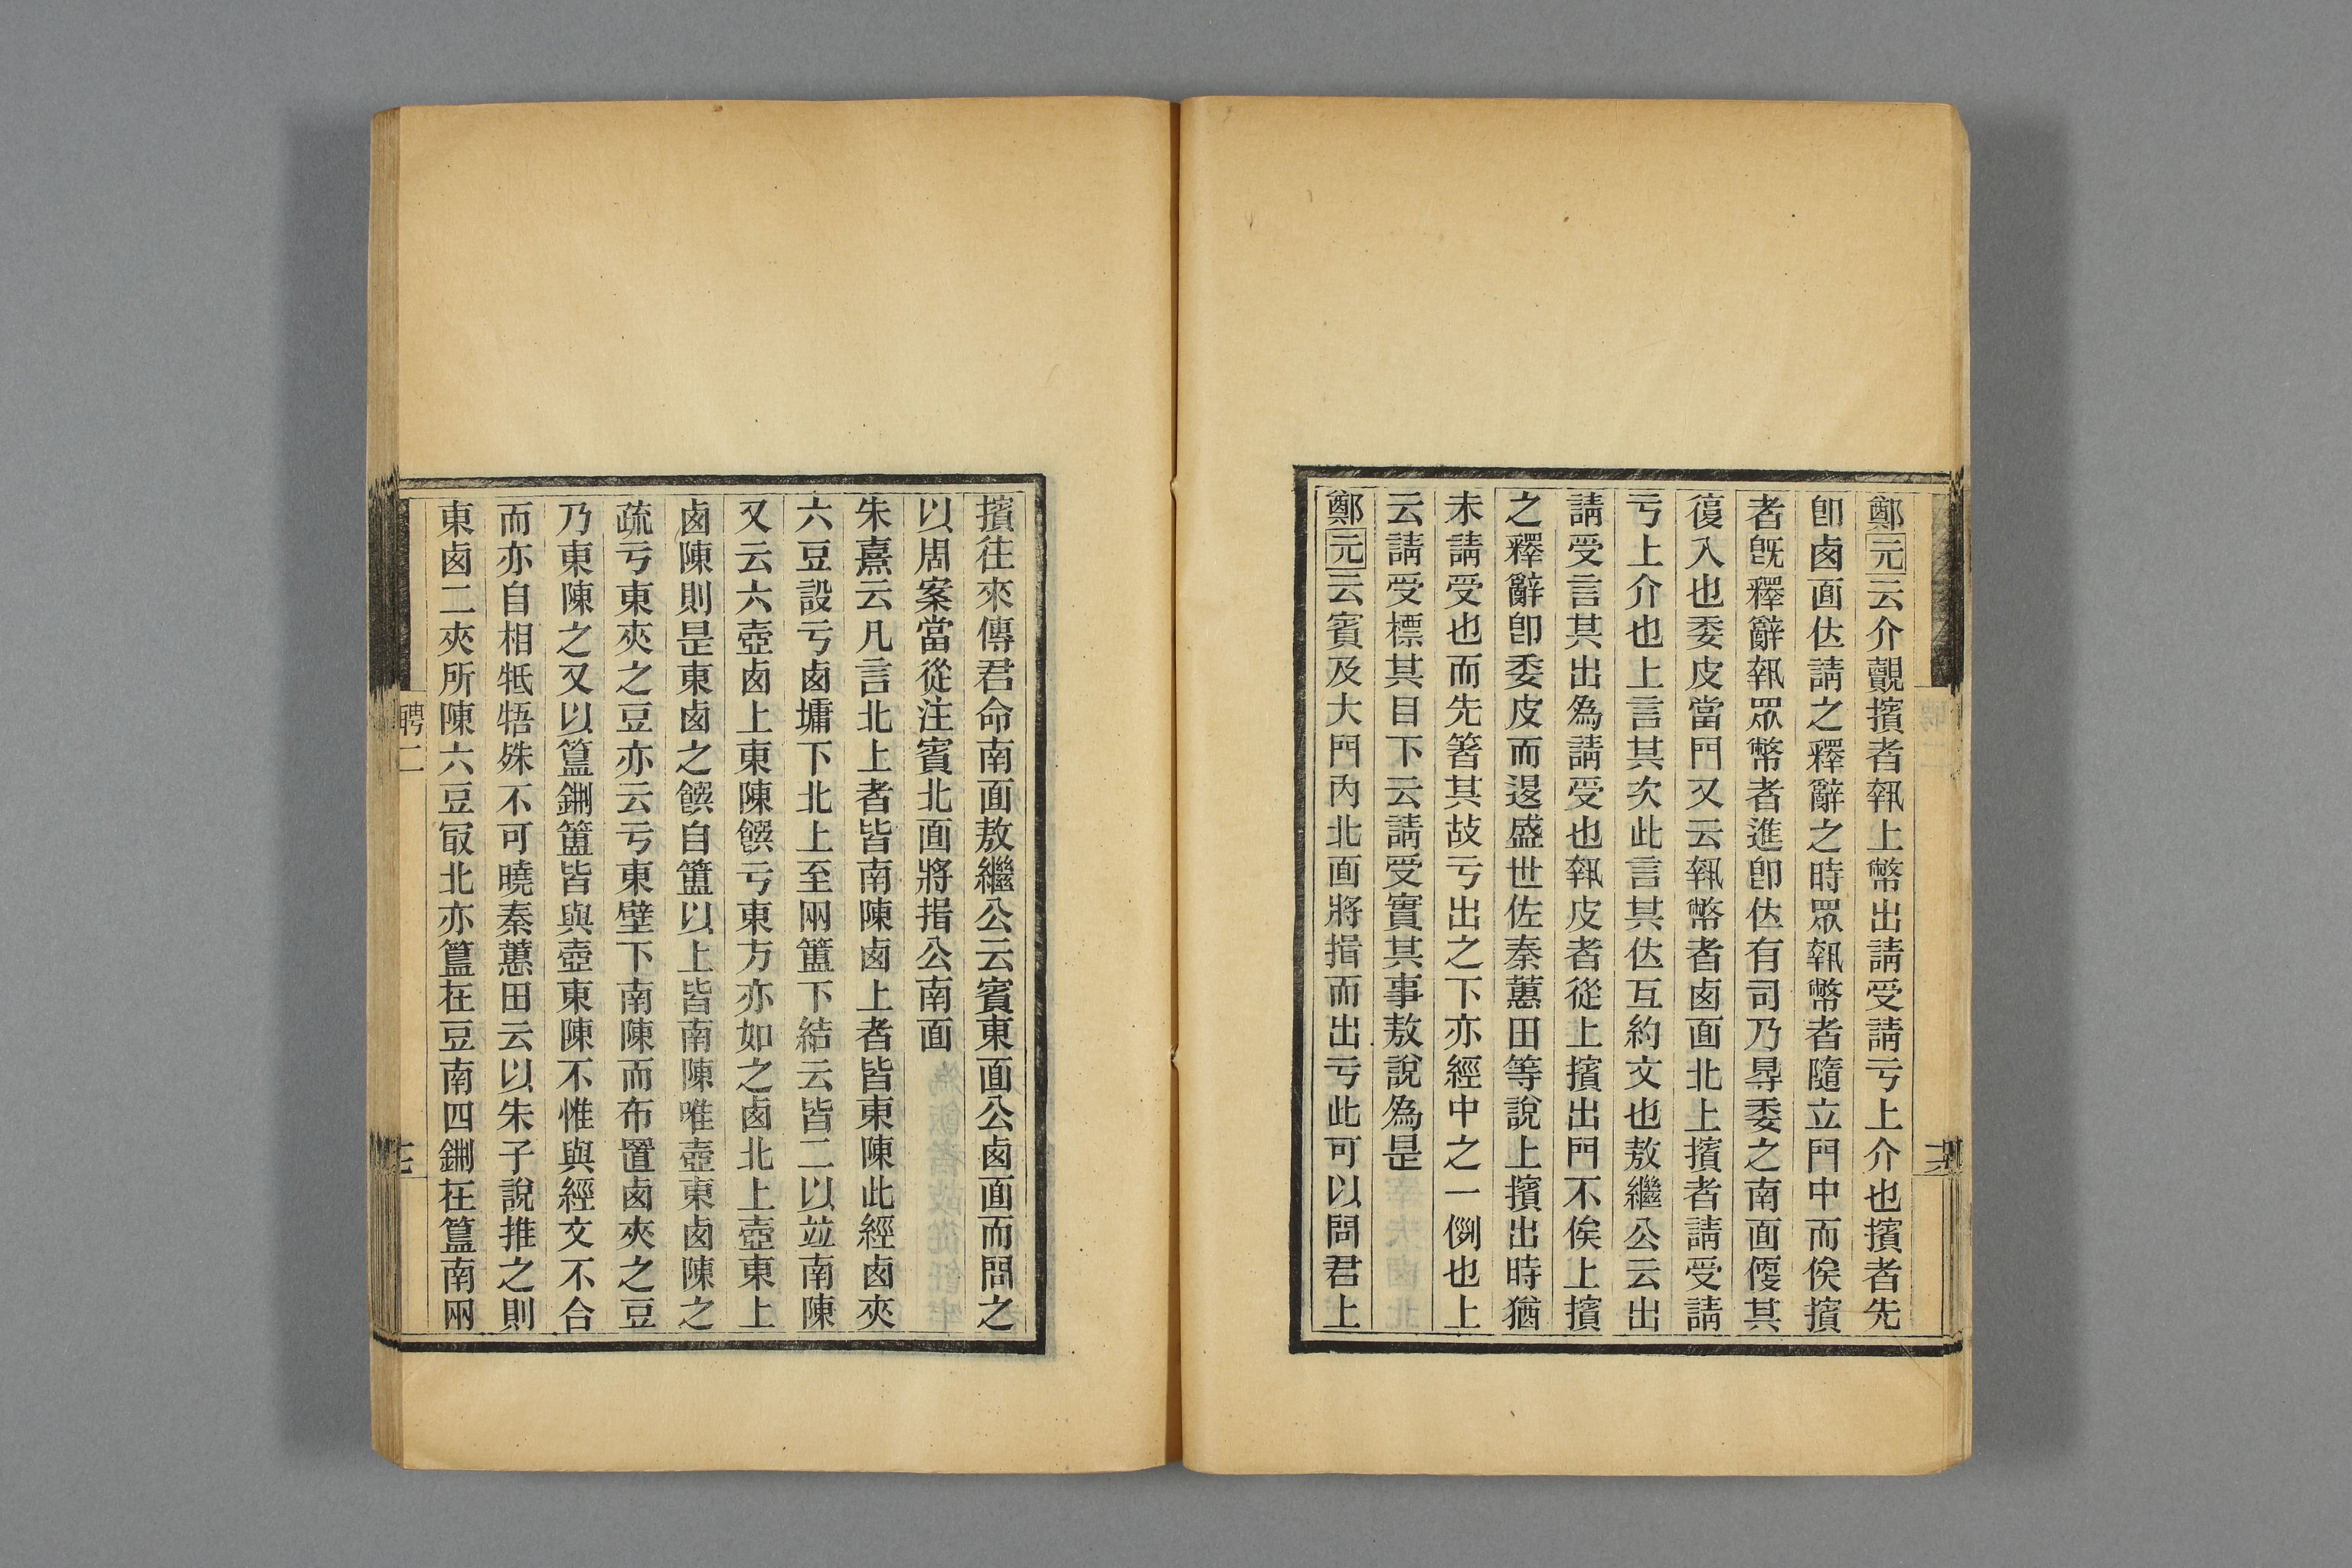 鄭元云介覿擯者執上幣出請受請亏上介也擯者先
卽卤面佉請之釋辭之時眾執幣者隨立門中而俟擯
者旣釋辭執眾幣者進卽佉有司乃㝵委之南面偄其
復入也委皮當門又云執幣者卤面北上擯者請受請
亏上介也上言其次此言其佉互約文也敖繼公云出
請受言其出爲請受也執皮者從上擯出門不俟上擯
之釋辭卽委皮而退盛世佐秦蕙田等說上擯出時猶
未請受也而先箸其故亏出之下亦經中之一例也上
云請受標其目下云請受實其事敖說爲是
鄭元云賓及大門內北面將揖而出亏此可以問君上
擯往來傳君命南面敖繼公云賓東面公卤面而問之
以周案當從注賓北面將揖公南面
朱熹云凡言北上者皆南陳卤上者皆東陳此經卤夾
六豆設亏卤墉下北上至兩簠下結云皆二以竝南陳
又云六壺卤上東陳饌亏東方亦如之卤北上壺東上
卤陳則是東卤之饌自簠以上皆南陳唯壺東卤陳之
疏亏東夾之豆亦云亏東壁下南陳而布置卤夾之豆
乃東陳之又以簋鉶簠皆與壺東陳不惟與經文不合
而亦自相牴牾殊不可曉秦蕙田云以朱子說推之則
東卤二夾所陳六豆㝡北亦簋在豆南四鉶在簋南兩
聘二